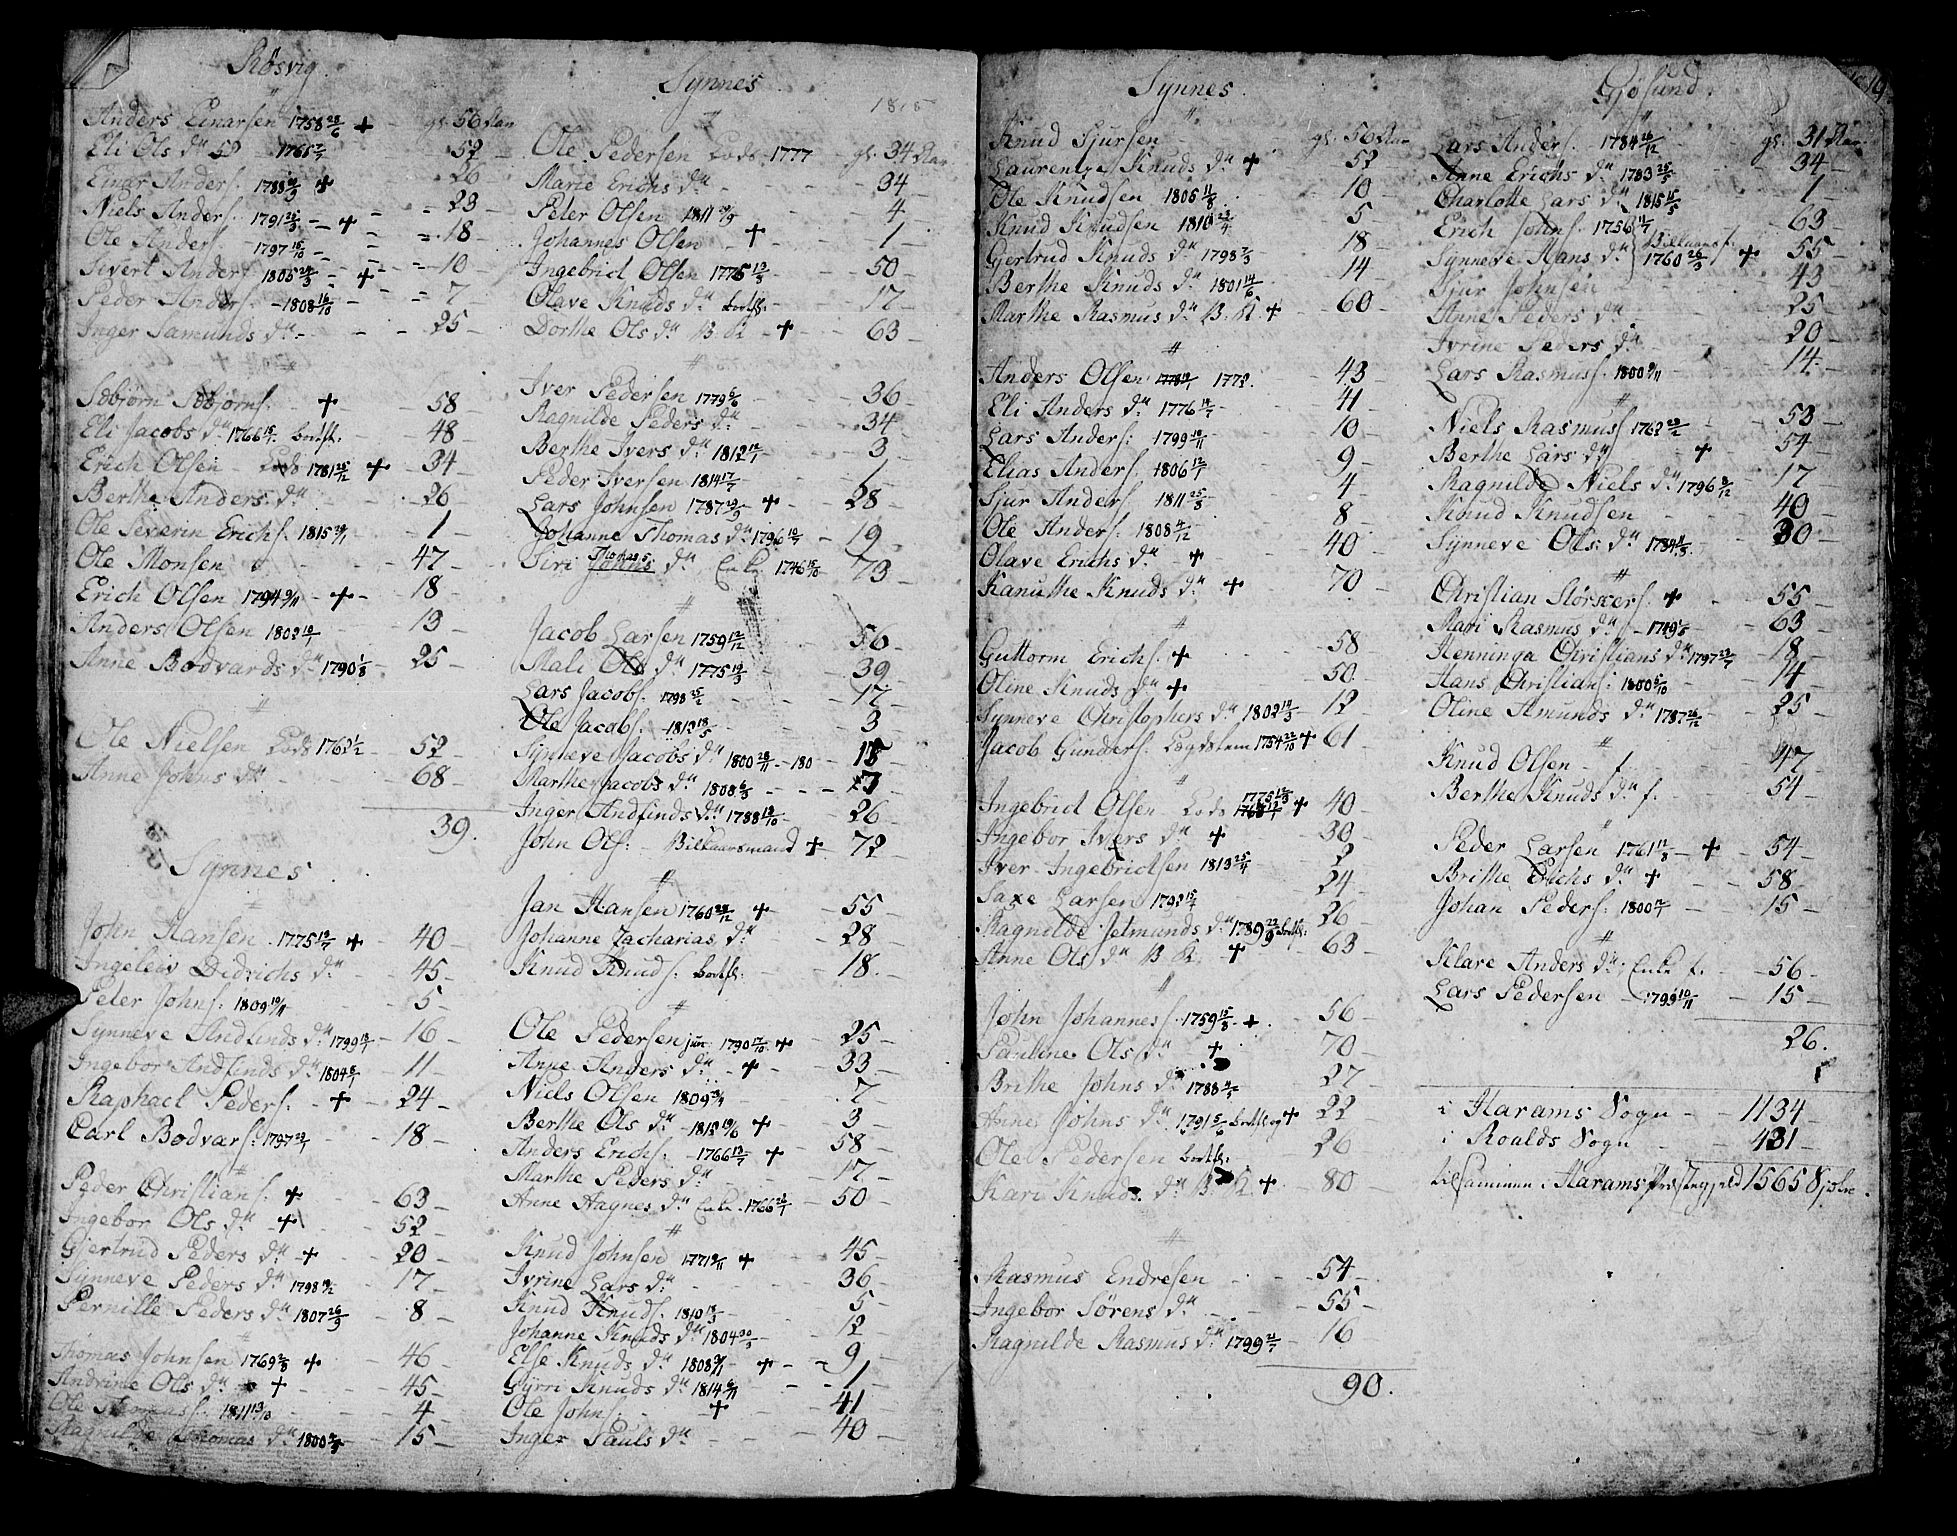 Røsvig
Anders Einarsen 1758 28/6 + gl. 56 Aar
Eli Ols d. 1765 52
Einar Anders. 1788 + 26
Niels Anders. 1791 + 23
Ole Anders. 1797 18
Sivert Anders. 1805 + 10
Peder Anders. 1808 16/10 7
Inger Samunds d. 25
Asbjørn Asbjørns. + 58
Eli Jacobs d. 1766 48
Erich Olsen Lods 1781 25/12 + 34
Berthe Anders d. 26
Ole Severin Erichs. 1815 1
Ole Monsen 47
Erich Olsen 1794 + 18
Anders Olsen 1802 13
Anne Bodvards d. 1790 25
Ole Nielsen Lods 1762 52
Anne Johns d. 68
39.
Synnes
John Hansen 1775 + 40
Ingeleiv Didrichs d. 45
Peter Johns. 1809 5
Synneve Andfinds d. 1799 16
Ingebor Andfinds d. 1804 11
Raphael Peders. + 24
Carl Bodvars. 1797 18
Peder Christians. + 63
Ingebor Ols d. + 52
Gjertrud Peders d. + 20
Synneve Peders d. 1798 17
Pernille Peders d. 1807 26/9 8
Thomas Johnsen 1769 + 46
Andrine Ols d. + 45
Ole Thomass. 1811 13/10 4
Ragnilde Thomas d. 1800 15
Synnes
1815
Ole Pedersen Lods 1777 gl. 34 Aar
Marie Erichs d. 34
Peter Olsen 1811 4
Johannes Olsen + 1
Ingebrid Olsen 1775 13/3 50
Olave Knuds d. bortfl. 17
Dorthe Ols d. B. K. + 63
Iver Pedersen 1779 36
Ragnilde Peders d. 34
Berthe Ivers d. 1812 3
Peder Iversen 1814 1
Lars Johnsen 1787 + 28
Johanne Thomas d. 1796 19
Siri Johns Thomas d. Enke 1746 73
Jacob Larsen 1759 12/12 56
Mali Ols d. 1775 39
Lars Jacobs. 1798 17
Ole Jacobs. 1813 18/5 3
Synneve Jacobs d. 1800 28/11 - 180 15
Marthe Jacobs d. 1808 7
Inger Andfinds d. 1788 26
John Ols. Billkaarsmand + 72
Jan Hansen 1760 + 55
Johanne Zacharias d. 28
Knud Knuds. bortfl. 18
Ole Pedersen jun 1790 + 25
Anne Anders d. + 33
Niels Olsen 1809 7
Berthe Ols d. 1812 + 3
Anders Erichs. 1766 + 58
Marthe Peders d. 17
Anne Hagnes d. Enke 1766 50
Knud Johnsen 1771 + 45
Ivrine Lars d. 36
Knud Knuds. 1810 13/3 5
Johanne Knuds d. 1804 12
Else Knuds d. 1808 + 9
Gyrri Knuds d. 1814 1
Ole Johns. + 41
Inger Pauls d. 40
Synnes
Knud Sjursen gl. 56 Aar
Laurentze Knuds d. + 52
Ole Knudsen 1805 11/8 10
Knud Knudsen 1810 5
Gertrud Knuds d. 1798 18
Berthe Knuds d. 1801 14/6 14
Marthe Rasmus d. B. K. + 60
Anders Olsen 1772 43
Eli Anders d. 1776 41
Lars Anders. 1799 10
Elias Anders. 1806 9
Sjur Anders. 1811 25/8 4
Ole Anders. 1808 4/12 8
Olave Erichs d. + 40
Kanuthe Knuds d. + 70
Guttorm Erichs. + 58
Oline Knuds d. + 50
Synneve Christophers d. 1802 12
Jacob Gunders. Lægdslem 1754 22/10 + 61
Ingebrid Olsen Lods 1775 + 40
Ingebor Ivers d. + 30
Iver Ingebridtsen 1813 25/4 2
Saxe Larsen 1792 24
Ragnilde Jetmunds d. 1789 bortfl. 26
Anne Ols d. B. K. + 63
John Johannes. 1759 + 56
Pauline Ols d. + 70
Brithe Johns d. 1788 27
Anne Johns d. 1791 bortfl. og + 22
Ole Pedersen bortfl. 26
Kari Knuds d. B. K. + 80
Rasmus Endresen 54
Ingebor Sørens d. 55
Ragnilde Rasmus d. 1799 16
90.
Gjøsund
Lars Anders. 1784 26/12 gl. 31 Aar
Anne Erichs d. 1783 34
Charlotte Lars d. 1815 1
Erich Johns. 1756 63
Synneve Hans d. 1760 26/3 + 55
Sjur Johnsen 43
Anne Peders d. 25
Ivrine Peders d. 20
Lars Rasmuss. 1800 14
Niels Rasmuss. 1762 53
Berthe Lars d. + 54
Ragnilde Niels d. 1796 8/12 17
Knud Knudsen 40
Synneve Ols d. 1784 30
Christian Størkers. + 55
Mari Rasmus d. 1749 63
Henninga Christians d. 1797 18
Hans Christians. 1800 14
Oline Amunds d. 1787 26/12 25
Knud Olsen f. 47
Berthe Knuds d. f. 54
Peder Larsen 1761 11/8 + 54
Brithe Erichs d. + 58
Johan Peders. 1800 15
Klare Anders d. Enke f. 56
Lars Pedersen 1799 10/11 15
26.
i Harams Sogn 1134
i Roalds Sogn 431
tilsammen i Harams Præstegjeld 1565 Sjæle.